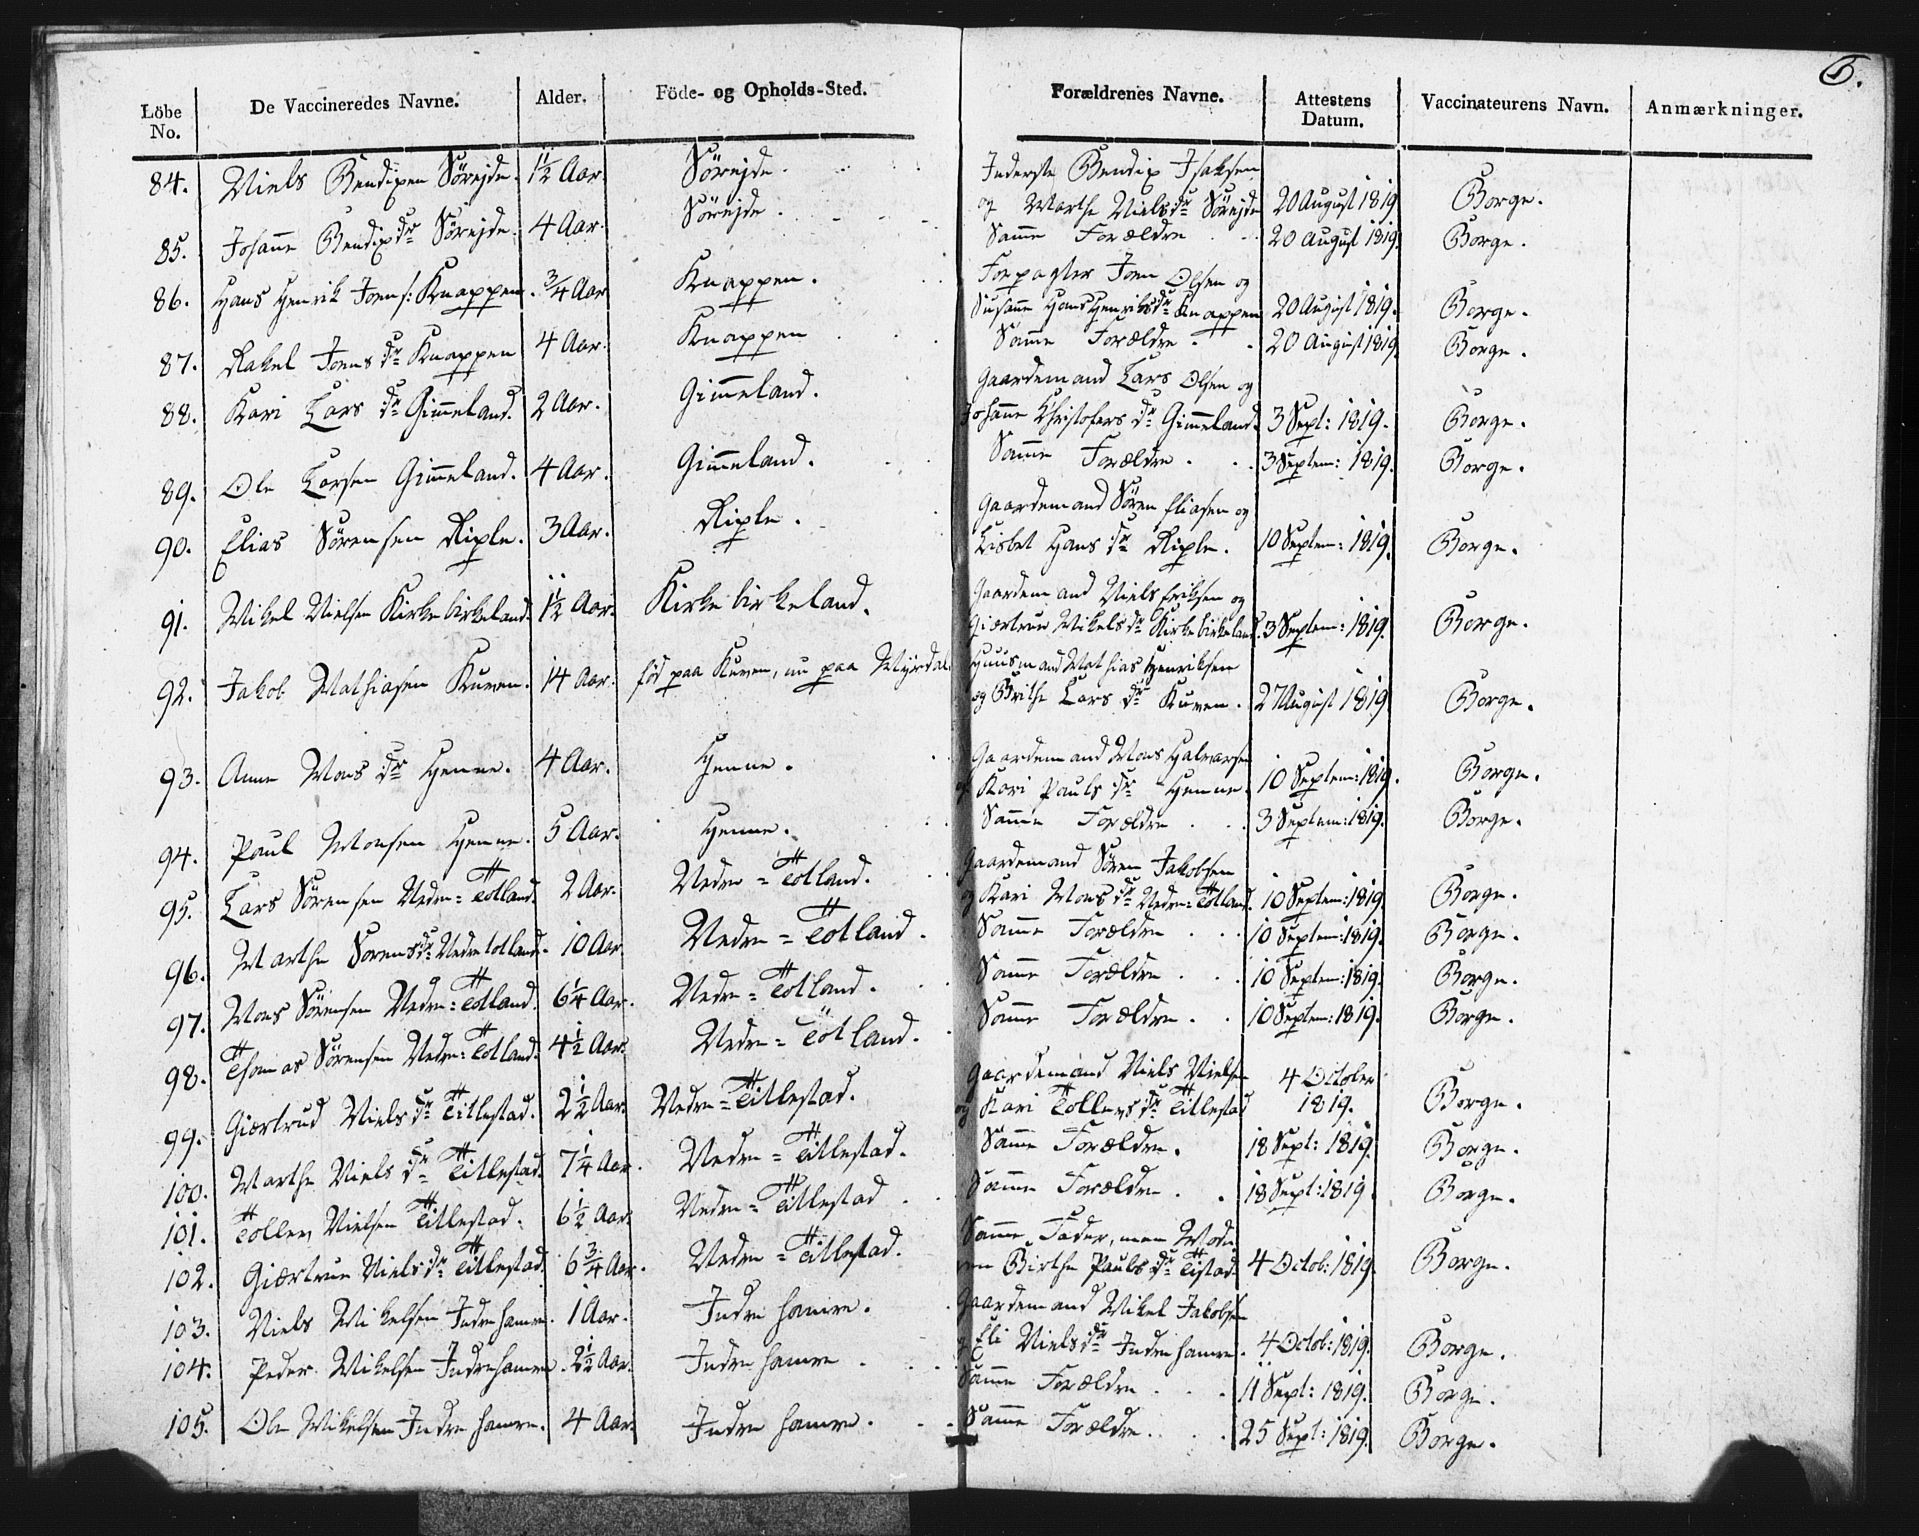 5.
Löbe No. De Vaccineredes Navne. Alder. Föde- og Opholds-Sted. Forældrenes Navne. Attestens Datum. Vaccinateurens Navn. Anmærkninger.
84. Niels Bendixen Sörejde. 1 1/2 Aar. Sörejde. Inderste Bendix Isaksen
og Marthe Nielsdr Sörejde 20 August 1819 Borge.
85. Johanne Bendixdr Sörejde. 4 Aar. Sörejde. Samme Forældre 20 August 1819. Borge.
86. Hans Henrik Joens: Knappen. 3/4 Aar Knappen. Forpagter Joen Olsen og
Susanne Hans Henriksdr Knappen 20 August 1819. Borge.
87. Rakel Joensdr Knappen 4 Aar. Knappen Samme Forældre. 20 August 1819. Borge.
88. Kari Larsdr Gimmeland. 2 Aar. Gimmeland. Gaardemand Lars Olsen og
Johanne Christofersdr Gimmeland. 3 Sept: 1819. Borge.
89. Ole Larsen Gimmeland. 4 Aar. Gimmeland. Samme Forældre. 3 Septem: 1819. Borge.
90. Elias Sörensen Riple. 3 Aar. Riple. Gaardemand Sören Eliasen og
Lisbet Hansdr Riple. 10 Septem: 1819. Borge.
91. Mikel Nielsen Kirkebirkeland. 1 1/2 Aar. Kirkebirkeland. Gaardemand Niels Eriksen og
Giærtrue Mikelsdr Kirkebirkeland. 3 Septem: 1819. Borge.
92. Jakob Mathiasen Kuven. 14 Aar. föd paa Kuven, nu paa Myrdal Huusmand Mathias Henriksen
og Brithe Larsdr Kuven. 27 August 1819 Borge.
93. Anne Monsdr Henne. 4 Aar. Henne. Gaardemand Mons Halvarsen
og Kari Paulsdr Henne. 10 Septem: 1819. Borge.
94. Paul Monsen Henne. 5 Aar. Henne. Samme Forældre 3 Septem: 1819. Borge.
95. Lars Sörensen Nedre=Totland. 2 Aar. Nedre=Totland. Gaardemand Sören Jakobsen
og Kari Monsdr Nedre=Totland. 10 Septem: 1819 Borge.
96. Marthe Sorensdr Nedretotland. 10 Aar. Nedre=Totland. Samme Forældre 10 Septem: 1819. Borge.
97. Mons Sörensen Nedre=Totland. 6 1/4 Aar. Nedre=Totland. Samme Forældre 10 Septem: 1819. Borge.
98. Thomas Sörensen Nedre=Totland. 4 1/2 Aar. Nedre=Totland. Samme Forældre. 10 Septem: 1819. Borge.
99. Giærtrud Nielsdr Titlestad. 2 1/2 Aar. Nedre=Titlestad. Gaardemand Niels Nielsen
og Kari Tollevsdr Titlestad 4 October 1819. Borge.
100. Marthe Nielsdr Titlestad. 7 1/4 Aar. Nedre=Titlestad. Samme Forældre. 18 Sept: 1819. Borge.
101. Tollev Nielsen Titlestad. 6 1/2 Aar. Nedre=Titlestad Samme Forældre. 18 Sept: 1819 Borge.
102. Giærtrue Nielsdr Titlestad. 6 3/4 Aar. Nedre=Titlestad. Samme Fader, men Mode
ren Birthe Paulsdr Tistad. 4 Octob: 1819. Borge.
103. Niels Mikelsen Indrehamre. 1 Aar. Indrehamre. Gaardemand Mikel Jakobsen
og Eli Nielsdr Indrehamre. 4 Octob: 1819. Borge.
104. Peder Mikelsen Indrehamre. 2 1/2 Aar. Indrehamre. Samme Forældre 11 Sept: 1819. Borge.
105. Ole Mikelsen Indrehamre. 4 Aar. Indrehamre. Samme Forældre. 25 Sept: 1819. Borge.